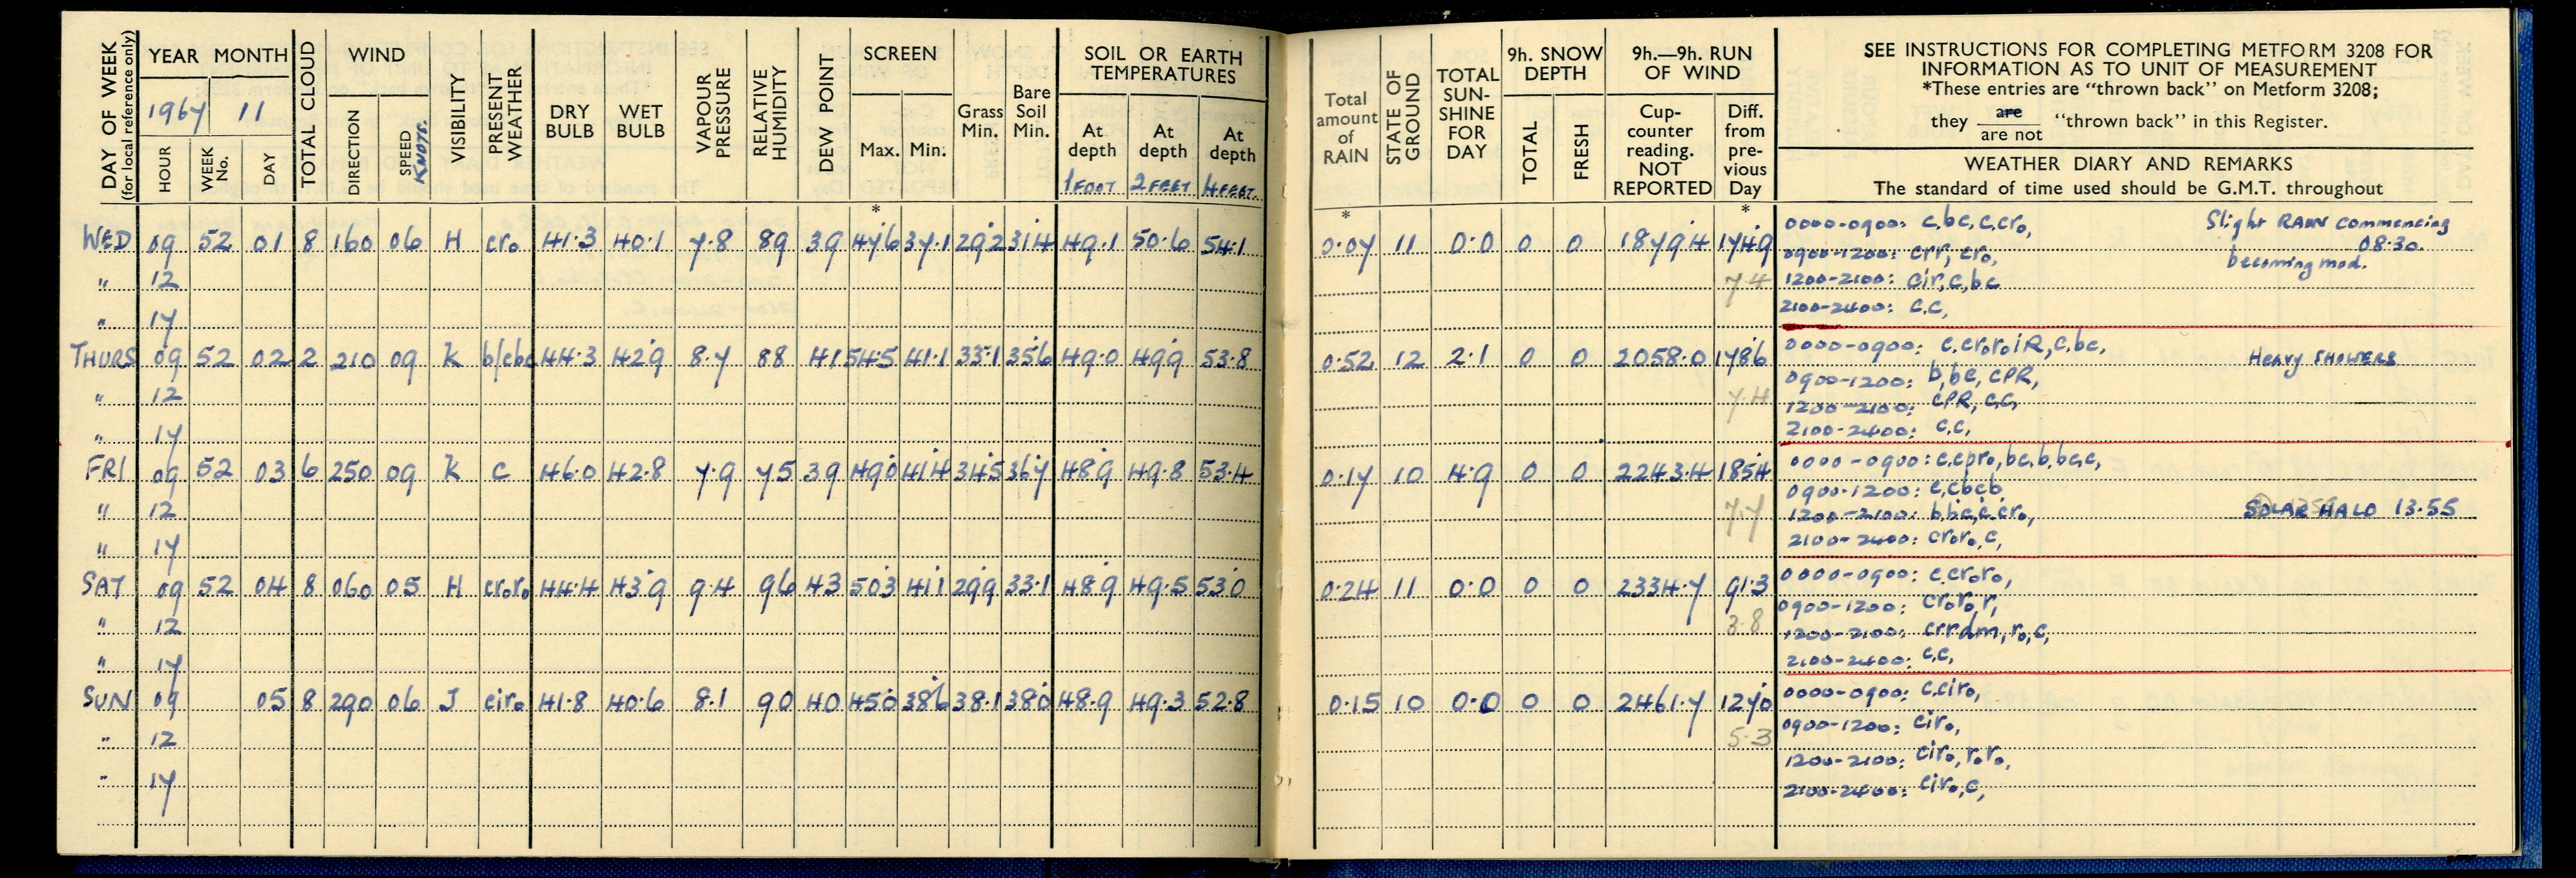 DAY OF WEEK (for local reference only) YEAR MONTH TOTAL CLOUD WIND VISIBILITY PRESENT WEATHER DRY BULB WET BULB VAPOUR PRESSURE RELATIVE HUMIDITY DEW POINT SCREEN Grass Min. Bare Soil Min. SOIL OR EARTH TEMPERATURES
1967 11
HOUR WEEK No. DAY DIRECTION SPEED KNOTS. Max. Min. At depth 1 FOOT At depth 2 FEET At depth 4 FEET
Total amount of RAIN STATE OF GROUND TOTAL SUN-SHINE FOR DAY 9h. SNOW DEPTH TOTAL FRESH 9h.—9h. RUN OF WIND Cup-counter reading. NOT REPORTED Diff. from pre-vious Day
SEE INSTRUCTIONS FOR COMPLETING METFORM 3208 FOR
INFORMATION AS TO UNIT OF MEASUREMENT
*These entries are "thrown back" on Metform 3208;
they are / are not "thrown back" in this Register.
WEATHER DIARY AND REMARKS
The standard of time used should be G.M.T. throughout
* * *
WED 09 52 01 8 160 06 H cro 41.3 40.1 7.8 89 39 47.6 37.1 29.2 31.4 49.1 50.6 54.1 0.07 11 0.0 0 0 1879.4 174.9
0000-0900: c,bc,c,cro, Slight RAIN commencing 08.30.
0900-1200: crr, cro, becoming mod.
" 12 7.4 1200-2100: cir,c,bc
" 17 2100-2400: c.c,
THURS 09 52 02 2 210 09 K b/cbc 44.3 42.9 8.7 88 41 54.5 41.1 33.1 35.6 49.0 49.9 53.8 0.52 12 2.1 0 0 2058.0 178.6
0000-0900: c.croroiR,c,bc, Heavy SHOWERS
0900-1200: b,bc, cPR,
" 12 7.4 1200-2100: cPR, c.c,
" 17 2100-2400: c.c,
FRI 09 52 03 6 250 09 K c 46.0 42.8 7.9 75 39 49.0 41.4 34.5 36.7 48.9 49.8 53.4 0.17 10 4.9 0 0 2243.4 185.4
0000-0900: c.cpro,bc,b,bc,c,
0900-1200: c,cbcb
" 12 7.7 1200-2100: b,bc,c.cro, SOLAR HALO 13.55
" 17 2100-2400: croro,c,
SAT 09 52 04 8 060 05 H croro 44.4 43.9 9.4 96 43 50.3 41.1 29.9 33.1 48.9 49.5 53.0 0.24 11 0.0 0 0 2334.7 91.3
0000-0900: c.croro,
0900-1200: croro,r,
" 12 3.8 1200-2100: crrdm,ro,c,
" 17 2100-2400: c.c,
SUN 09 05 8 290 06 J ciro 41.8 40.6 8.1 90 40 45.0 38.6 38.1 38.0 48.9 49.3 52.8 0.15 10 0.0 0 0 2461.7 127.0
0000-0900: c.ciro,
0900-1200: ciro,
" 12 5.3
1200-2100: ciro,roro,
" 17
2100-2400: ciro,c,